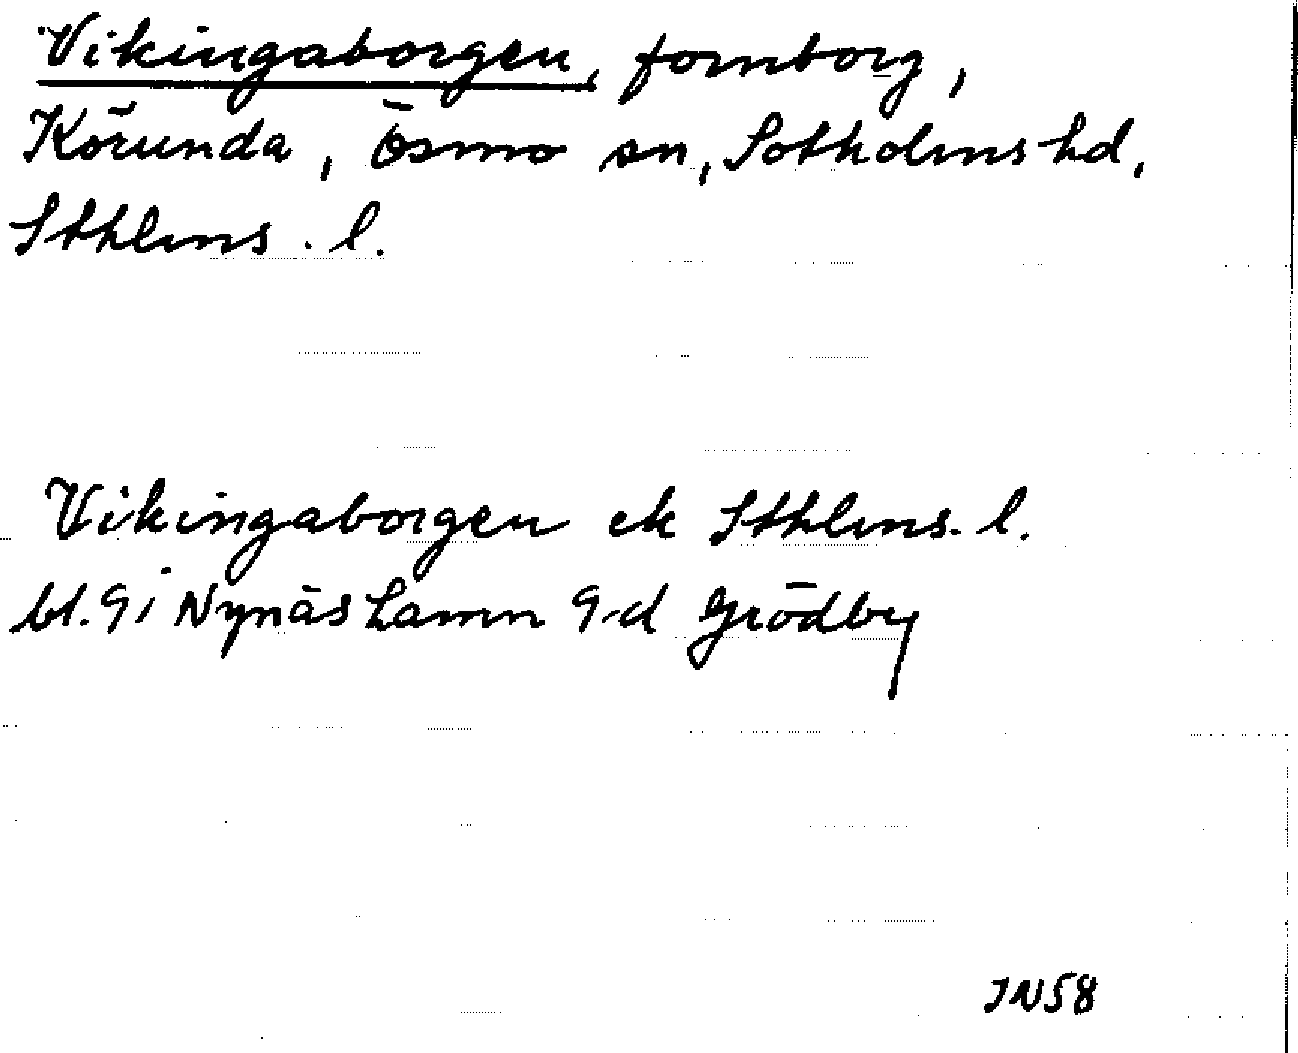 Vikingaborgen, fornborg,
Körunda, Ösmo sn, Sotholms hd,
Sthlms. l.
Vikingaborgen ek Sthlms. l.
bl. 9i Nynäshamn 9d Grödby
JN58